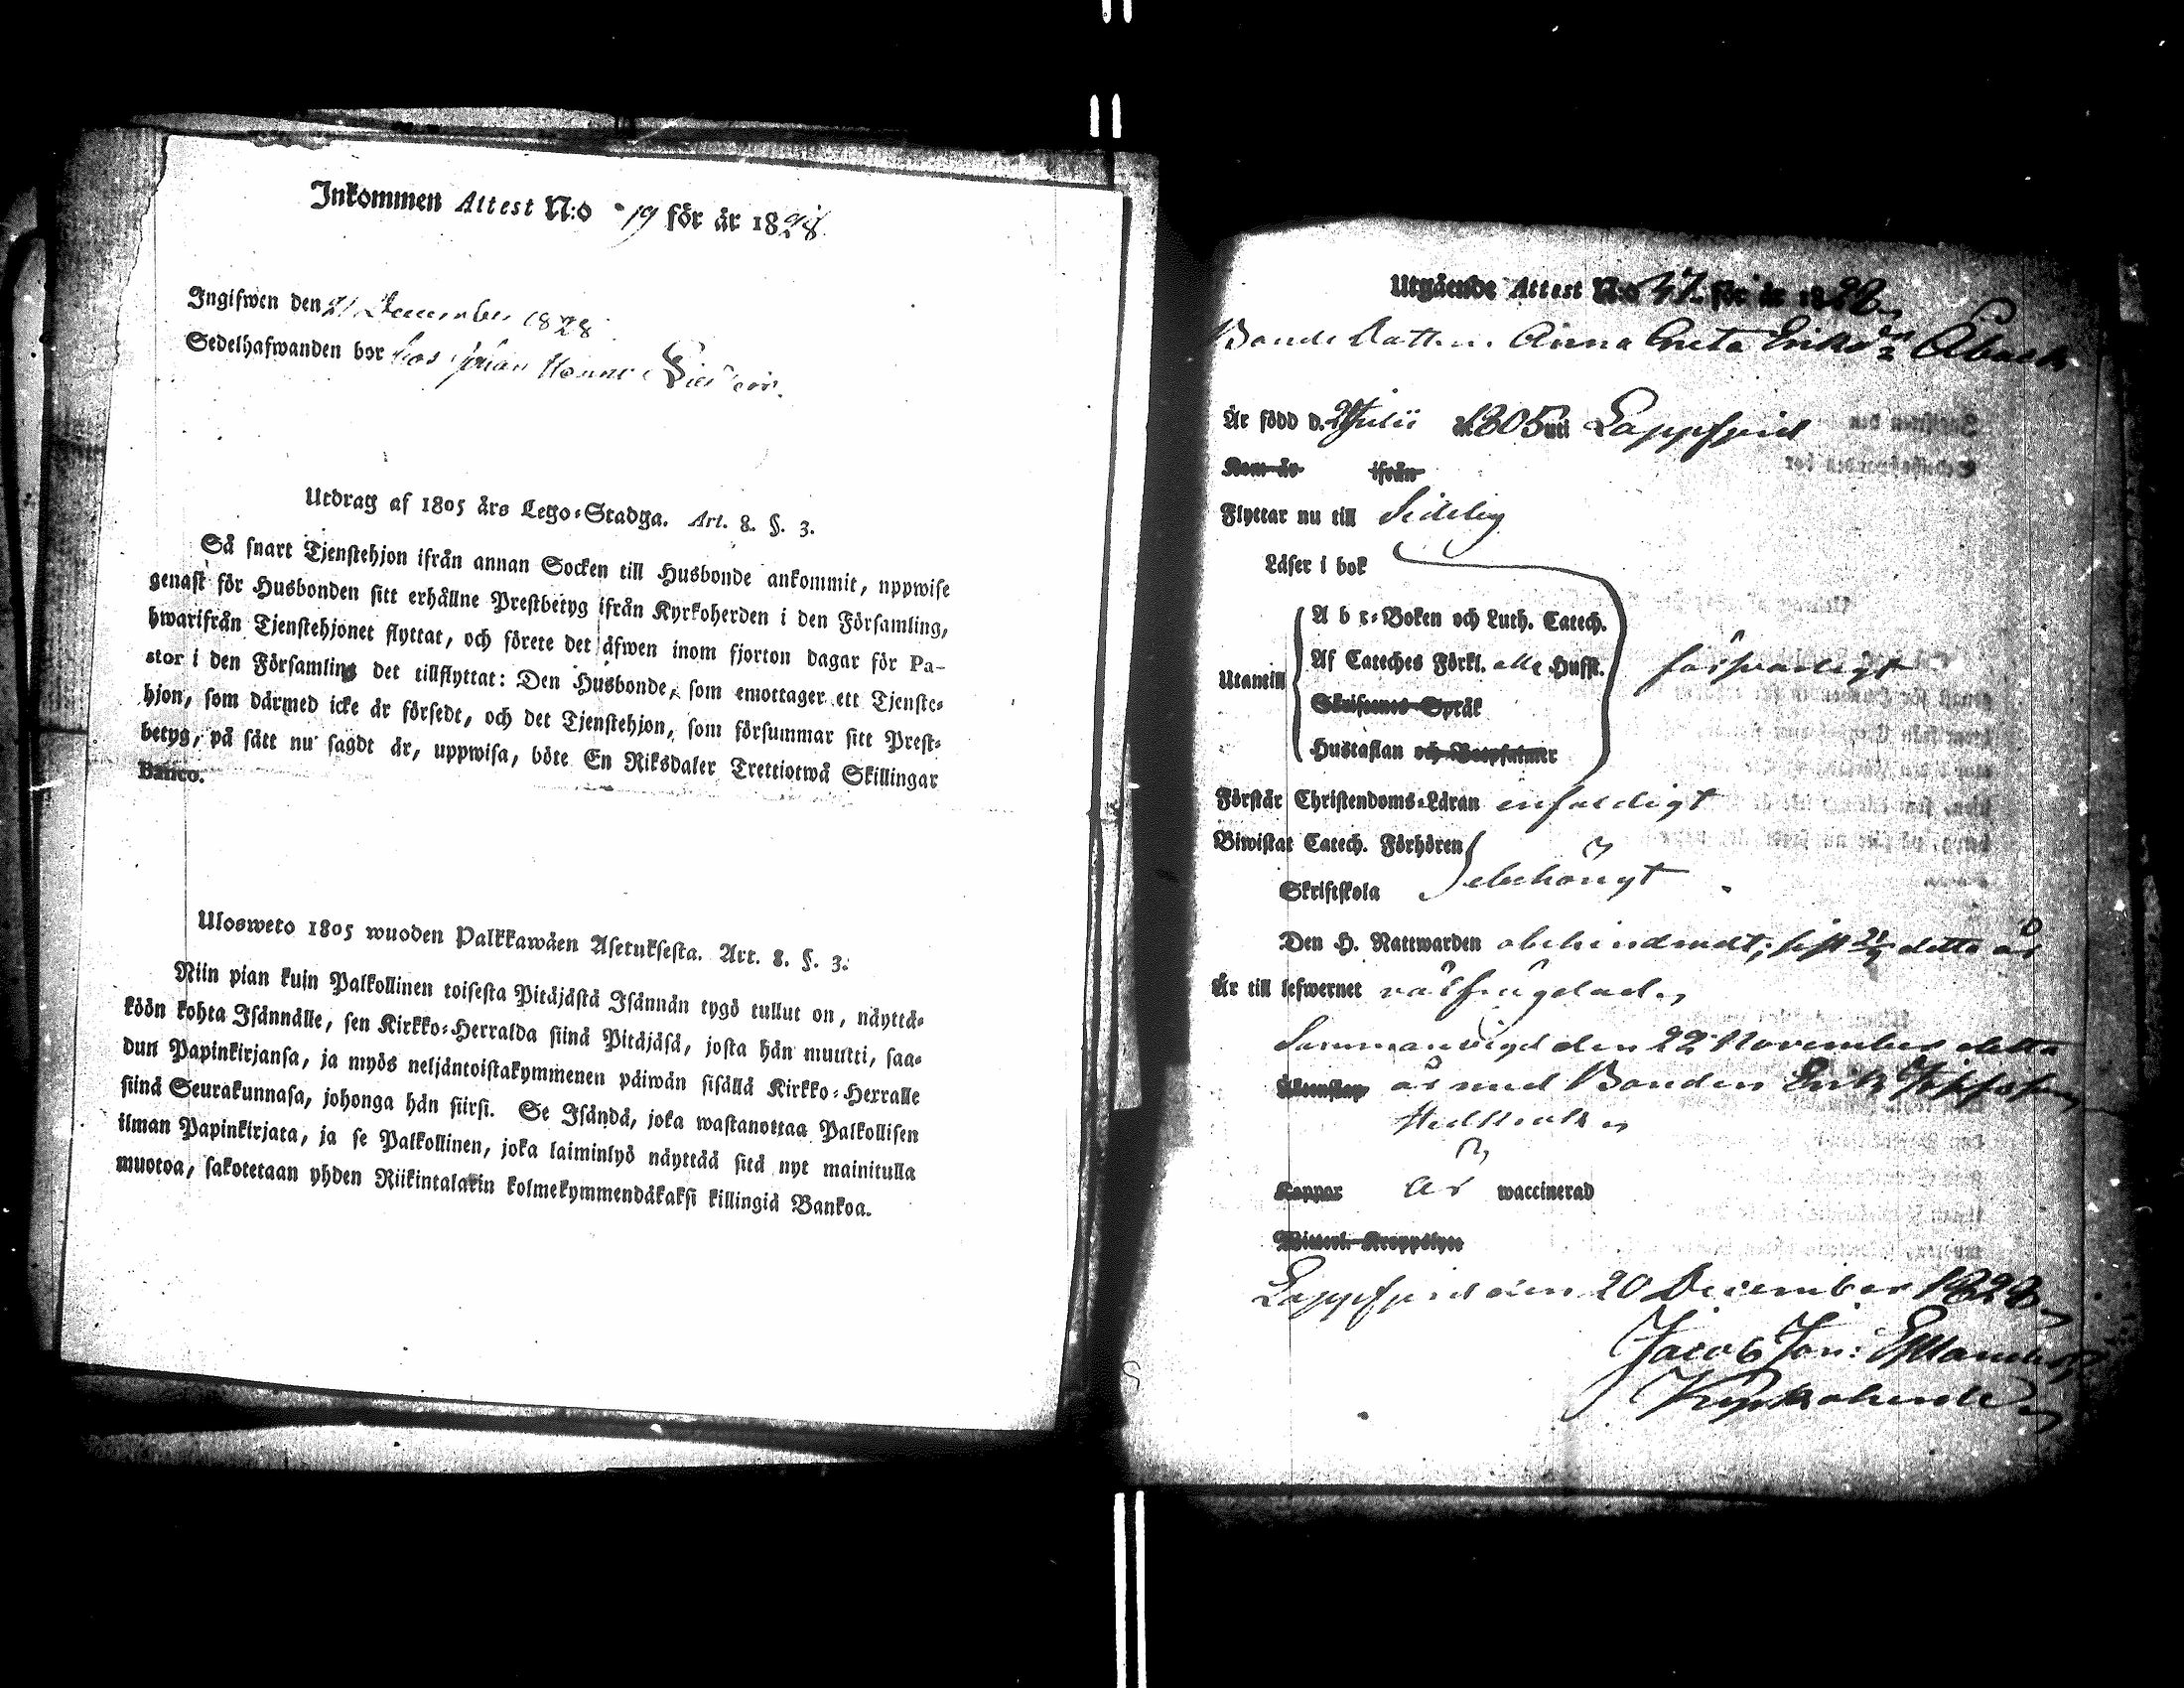 Inkommen Attest N:o 19 för år 1828
Ingifwen den 21 December 1828
Sedelhafwanden bor hos Johan
Utdrag af 1805 års Lego-Stadga. Art. 8. §. 3.
Så snart Tjenstehjon ifrån annan Socken till Husbonde ankommit, uppwise
genast för Husbonden sitt erhållne Prestbetyg ifrån Kyrkoherden i den Församling,
hwarifrån Tjenstehjonet flyttat, och förete det äfwen inom fjorton dagar för Pa-
stor i den Församling det tillflyttat: Den Husbonde, som emottager ett Tjenste-
hjon, som därmed icke är försedt, och det Tjenstehjon, som försummar sitt Prest-
betyg, på sätt nu sagdt är, uppwisa, böte En Riksdaler Trettiotwå Skillingar
Banco.
Ulosweto 1805 wuoden Palkkawäen Asetuksesta. Art. 8. §. 3.
Niin pian kuin Palkollinen toisesta Pitäjästä Isännän tygö tullut on, näyttä-
köön kohta Isännälle, sen Kirkko-Herralda siinä Pitäjäsä, josta hän muutti, saa-
dun Papinkirjansa, ja myös neljäntoistakymmenen päiwän sisällä Kirkko-Herralle
siinä Seurakunnasa, johonga hän siirsi. Se Isändä, joka wastanottaa Palkollisen
ilman Papinkirjata, ja se Palkollinen, joka laiminlyö näyttää sitä nyt mainitulla
muotoa, sakotetaan yhden Riikintalarin kolmekymmendäkaksi killingiä Bankoa.
Utgående Attest N:o 47 för år 1828
Bonde Dottren Anna Greta Eriksdr Åback
Är född d. Julii år 1805 uti Lappfjerd
Kom år ifrån
Flyttar nu till Sideby
Läser i bok
A b c-Boken och Luth. Catech.
Utantill Af Cateches Förkl. alla Hufst. försvarligt
Skriftenes Språk
Hustaflan och Botpsalmer
Förstår Christendoms-Läran enfaldigt
Biwistat Catech. Förhören
Skriftskola behörigt
Den H. Nattwarden obehindradt, sist detta år
Är till lefwernet välfrägdad
Sammanvigd den 22 November detta
Äktenskap år med Bonden Erik
Koppor är waccinerad
Witterl. Kroppslyte
Lappfjerd den 20 December 1828
Jacob Jon:
Kyrkoherde